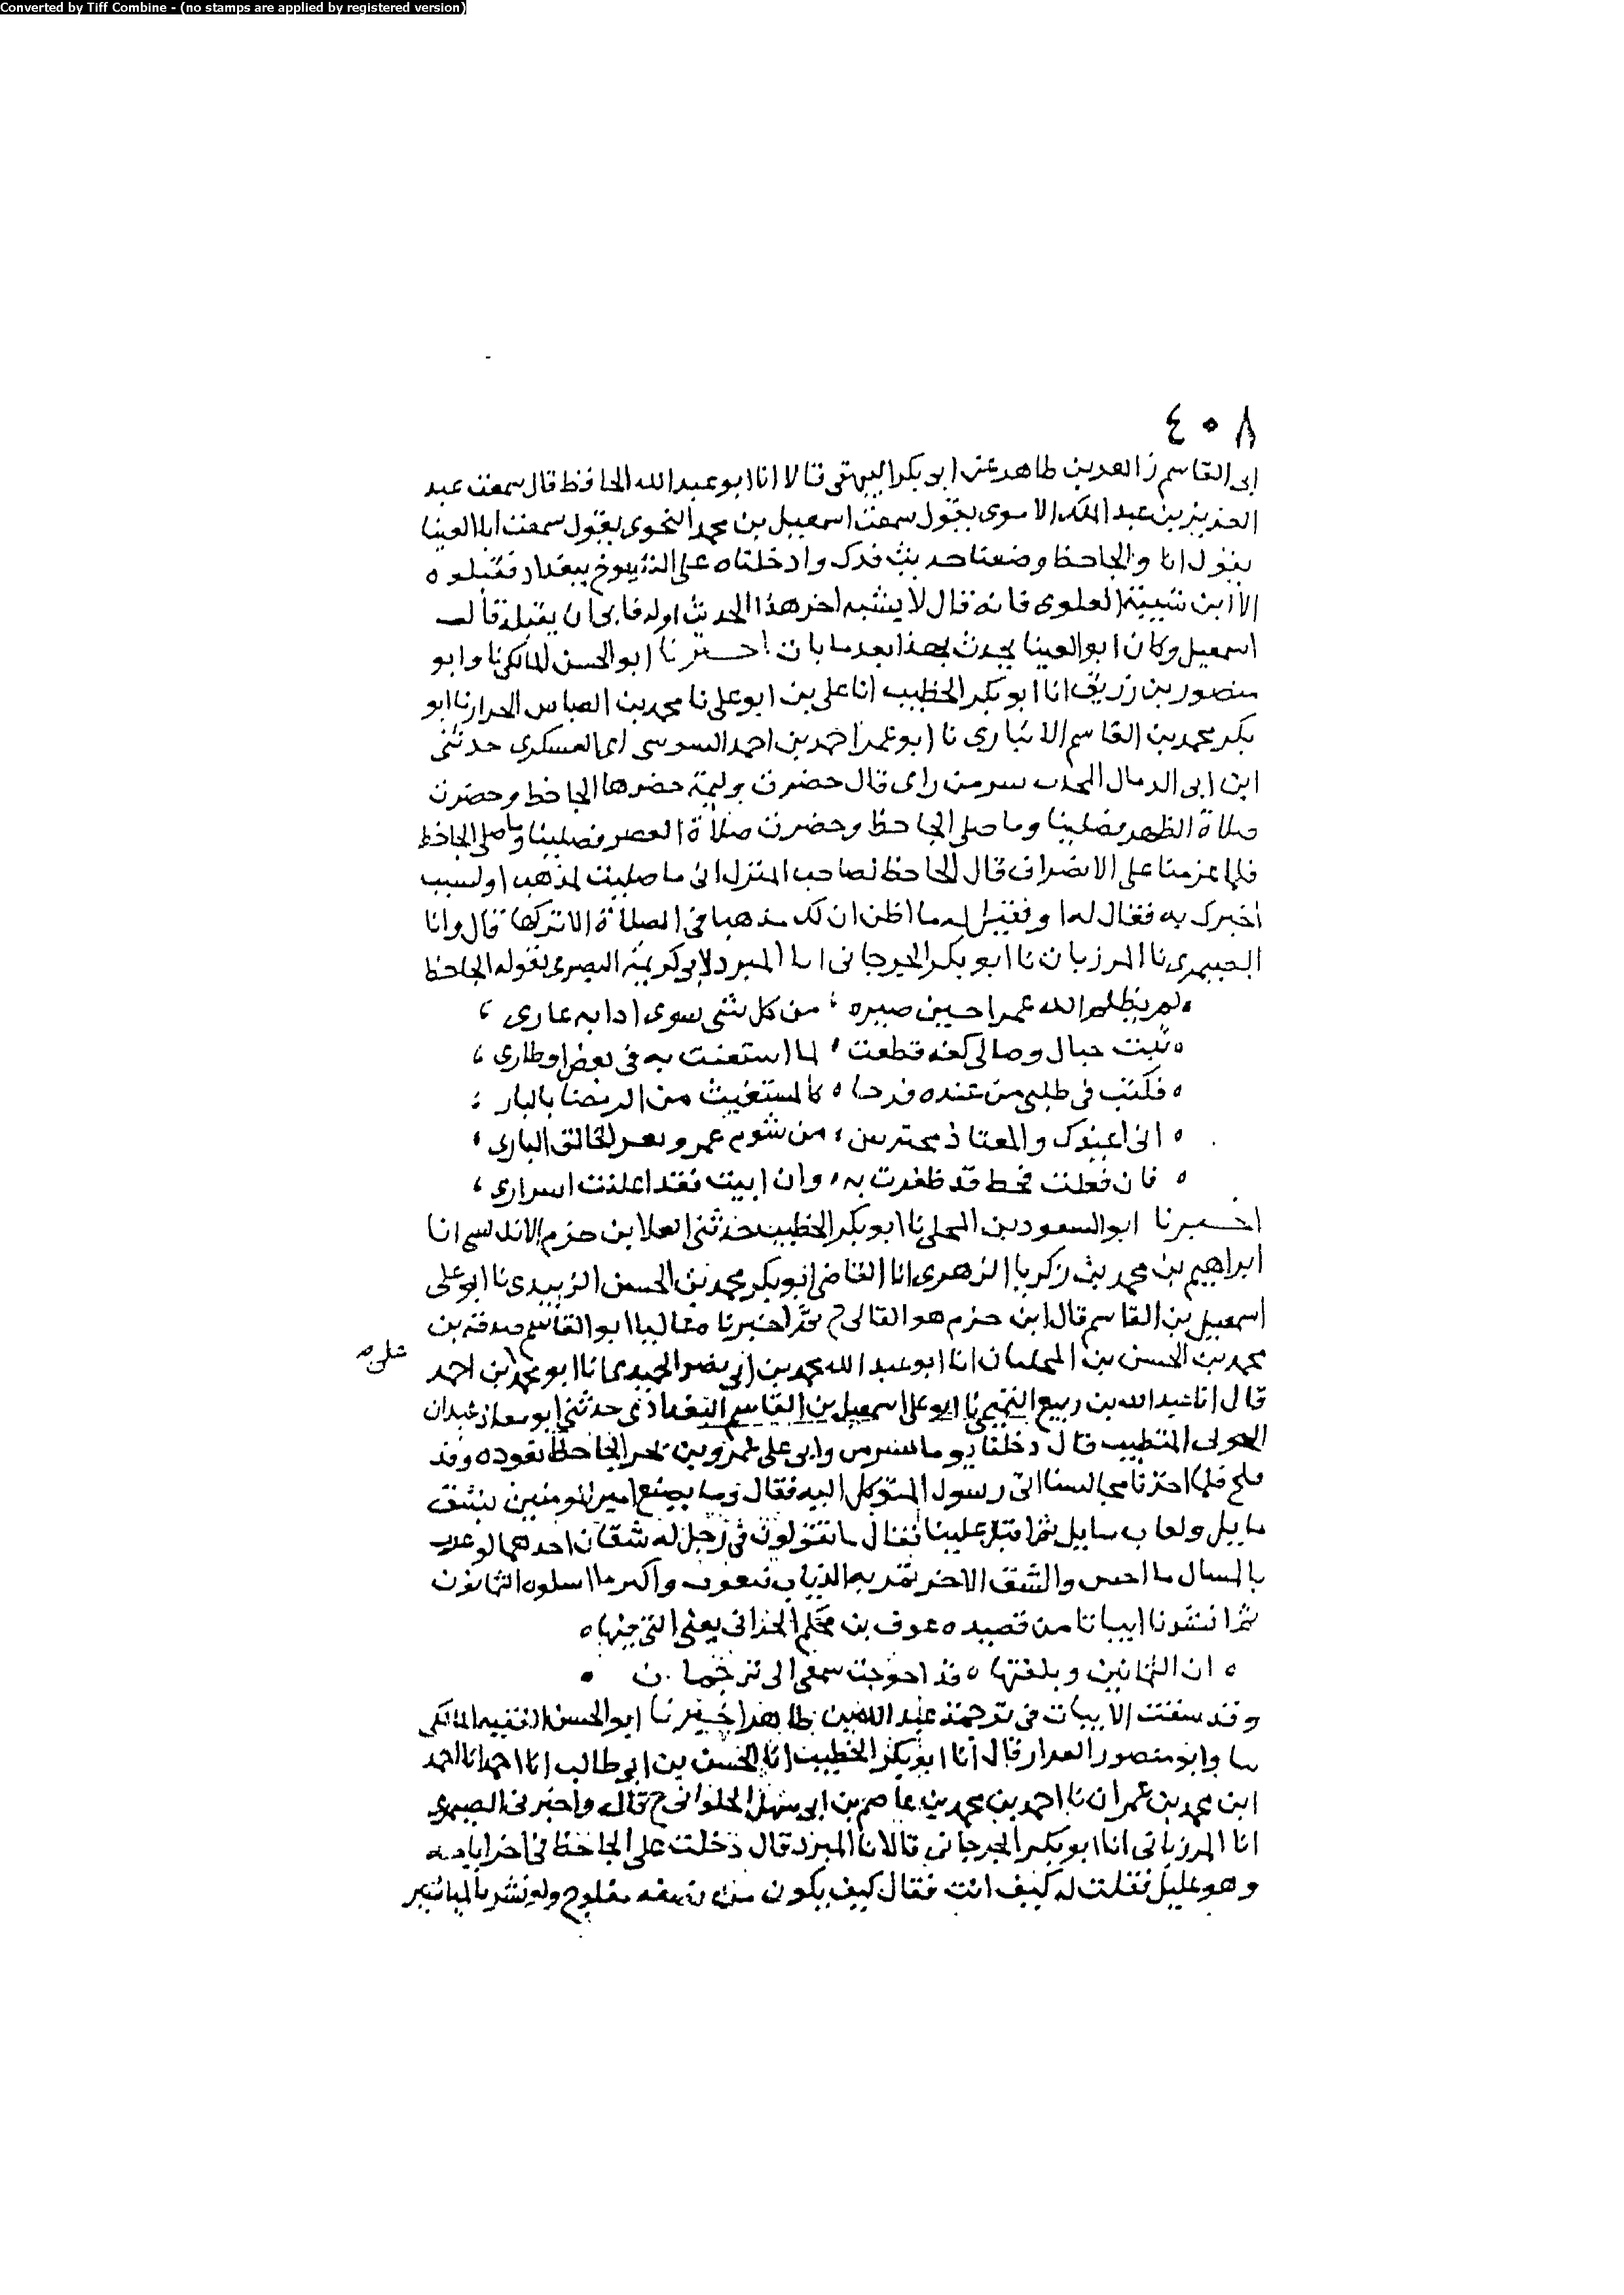 Converted by Tiff Combine - (no stamps are applied by registered version)
٤٠٨
ابى القاسم زاهر بن طاهر عن ابى بكر البيهقى قالا انا ابو عبد الله الحافظ قال سمعت عبد
العزيز بن عبد الملك الاموى يقول سمعت اسمعيل بن محمد النحوى يقول سمعت ابا العينا
يقول انا والجاحظ وضعنا حديث فدك وادخلناه على الشيوخ ببغداد فقبلوه
الا ابن شيبة العلوى فانه قال لا يشبه اخر هذا الحديث اوله فابى ان يقبله قال
اسمعيل وكان ابو العينا يحدث بهذا بعد ما بان اخبرنا ابو الحسن المالكى نا وابو
منصور بن زريق انا ابو بكر الخطيب انا على بن ابو على نا محمد بن العباس الحرار نا ابو
بكر محمد بن القاسم الانبارى نا ابو عمر احمد بن احمد السوسى العسكرى حدثنى
ابن ابى الدمال المحدث بسر من راى قال حضرت وليمة حضرها الجاحظ وحضرت
صلاة الظهر فصلينا وما صلى الجاحظ وحضرت صلاة العصر فصلينا وما صلى الجاحظ
فلما عزمنا على الانصراف قال الجاحظ لصاحب المنزل انى ما صليت لمذهب او لسبب
اخبرك به فقال له او فقيل له ما اظن ان لك مذهبا فى الصلاة الا تركها قال وانا
الصيمرى نا المرزبان نا ابو بكر الجرجانى انا المبرد لابى كريمة البصرى يقوله الجاحظ
لم يظلم الله عمرا حين صيره ؛ من كل شى سوى ادابه عارى ،
ه تبت حبال وصالى كفه قطعت ' لما استعنت به فى بعض اوطارى ،
ه فكنت فى طلبى من عنده فرحا ه كالمستغيث من الرمضا بالنار ؛
ه انى اعيذك والمعتاذ محترس ، من شوم عمرو بعز الخالق البارى ،
ه فان فعلت فحظ قد ظفرت به ، وان ابيت فقد اعلنت اسرارى ،
اخبرنا ابو السعود بن المحلى نا ابو بكر الخطيب حدثنى العلا بن حزم الاندلسى انا
ابراهيم بن محمد بن زكريا الزهرى انا القاضى ابو بكر محمد بن الحسن الزبيدى نا ابو على
اسمعيل بن القاسم قال ابن حزم هو القالى ح اخبرنا ابو القاسم صدقة بن
محمد بن الحسن بن المحلبان انا ابو عبد الله محمد بن ابى نصر الحميدى انا ابو محمد بن احمد
على صح
قال انا عبد الله بن ربيع التميمى نا ابو على اسمعيل بن القاسم البغدادى حدثنى ابو معاذ عبدان
الخولى المتطبب قال دخلنا يوما بسر من راى على عمرو بن بحر الجاحظ نعوده وقد
فلج فلما اخذنا مجالسنا اتى رسول المتوكل اليه فقال وما يصنع امير المومنين بشق
مايل ولعاب سايل ثم اقبل علينا فقال ما تقولون فى رجل له شقان احدهما لو غرز
بالمسال ما احس والشق الاخر تمر به الذباب فيغوث واكثر ما اشكوه الثمانون
ثم انشدنا ابياتا من قصيده عوف بن محلم الخزاعى يعنى التى فيها ه
ه ان الثمانين وبلغتها ه قد احوجت سمعى الى ترجمان
وقد سقت الابيات فى ترجمة عبد الله بن طاهر اخبرنا ابو الحسن الفقيه المالكى
نا وابو منصور قال انا ابو بكر الخطيب انا الحسن بن ابو طالب انا احمد
ابن محمد بن عمران نا احمد بن محمد بن عاصم بن ابى سهل الحلوانى ح قال واخبرنى الصيمرى
انا المرزبانى انا ابو بكر الجرجانى قالا نا المبرد قال دخلت على الجاحظ فى اخر ايامه
وهو عليل فقلت له كيف انت فقال كيف يكون من نصفه مفلوج ولو نشر بالمناشير